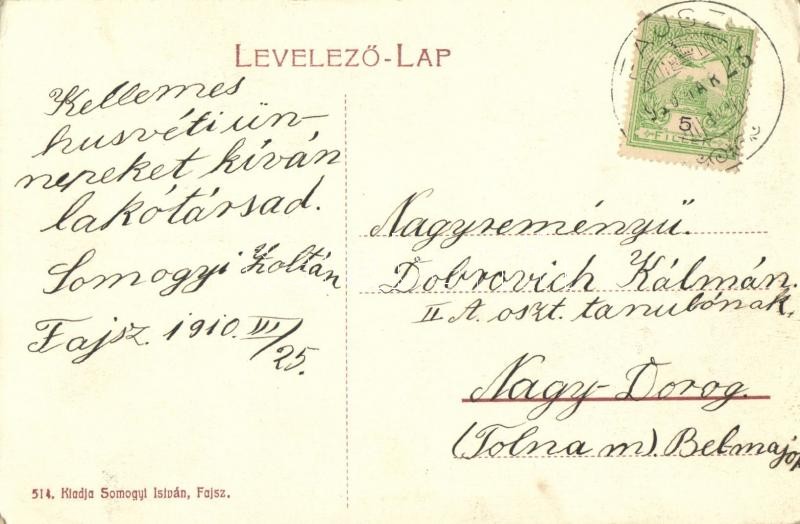 LEVELEZŐ-LAP
Kellemes
husvéti ün-
nepeket kíván
lakótársad.
Somogyi Zoltán
Fajsz. 1910. III/25.
FAJSZ
MAR 25
5
FILLÉR
Nagyreményü.
Dobrovich Kálmán.
II A. oszt. tanulónak.
Nagy-Dorog.
(Tolna m). Bel-major
514. Kiadja Somogyi István, Fajsz.